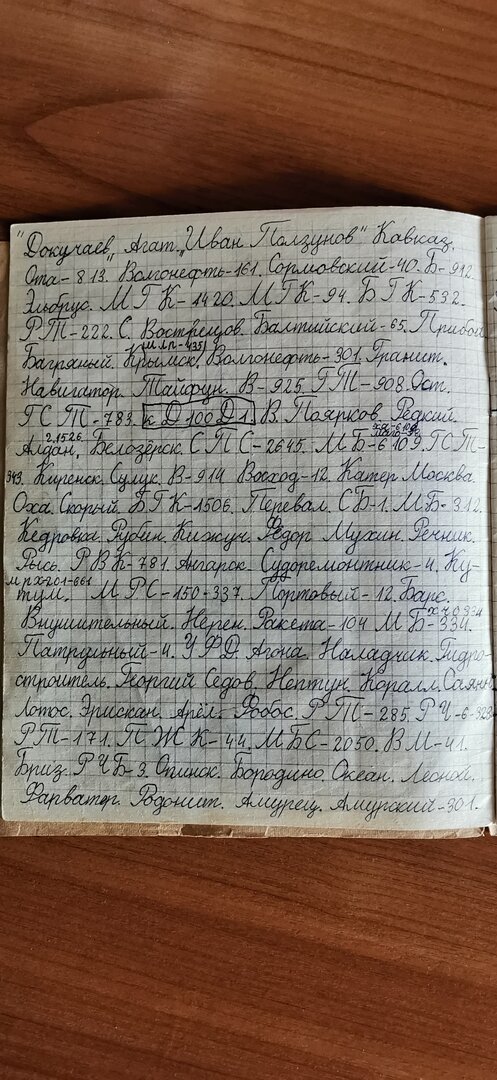 "Докучаев„ Агат. „Иван Ползунов" Кавказ.
Ота-813. Волгонефть-161. Сормовский-40. Б-912.
Эльбрус. МГК-1420. МГК-94. БГК-532.
РТ-222. С. Вострецов. Балтийский-65. Прибой
МЛП-435
Багряный. Крымск. Волгонефть-301. Гранит.
Навигатор. Тайфун. В-925. ГТ-908. Ост.
ГСТ-783. к Д100Д1. В. Поярков. Редкий.
21526
Алдан, Белозёрск. СПС-2645. МБ-6109. ГСТ-
343. Киренск. Сулук. В-914 Восход-12. Катер Москва.
Оха. Скорый. БГК-1506. Перевал. СБ-1. МБ-312.
Кедровка. Рубин. Кижуч. Фёдор Мухин. Речник.
Рысь. РВК-781. Ангарск. Судоремонтник-4. Ку-
тум. МРС-150-337. Портовый-12. Барс.
Внушительный. Нерей. Ракета-104 МБ-334.
Патрульный-4. УФД. Агона. Наладчик. Гидро-
строитель. Георгий Седов. Нептун. Коралл. Саяны
Лотос. Эрискан. Арёл. Фобос. РТ-285. РЧ-6-323
РТ-171. ПЖК-44. МБС-2050. ВМ-41.
Бриз. РЧБ-3. Олинск. Бородино. Океан. Лесной.
Фарватер. Родонит. Амурец. Амурский-301.